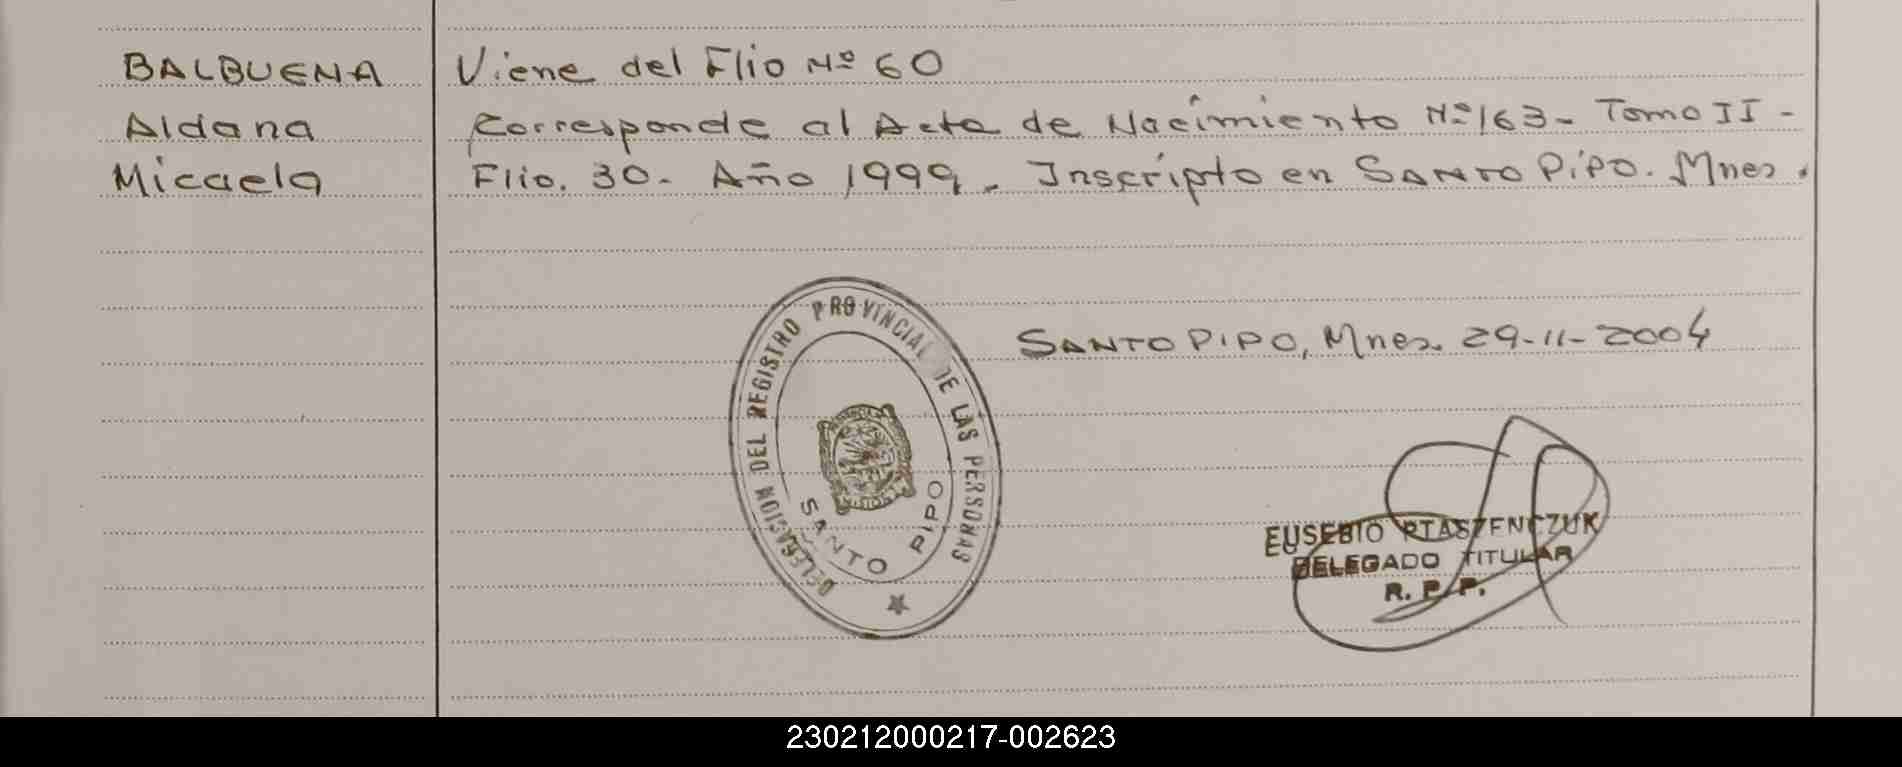 BALBUENA
Aldana
Micaela
Viene del Flio Nº 60
Corresponde al Acta de Nacimiento Nº 163 - Tomo II -
Flio. 30. Año 1999. Inscripto en SANTO PIPO. Mnes.
SANTO PIPO, Mnes. 29-11-2004
DELEGACION DEL REGISTRO PROVINCIAL DE LAS PERSONAS
SANTO PIPO
EUSEBIO PTASZENCZUK
DELEGADO TITULAR
R. P. P.
230212000217-002623